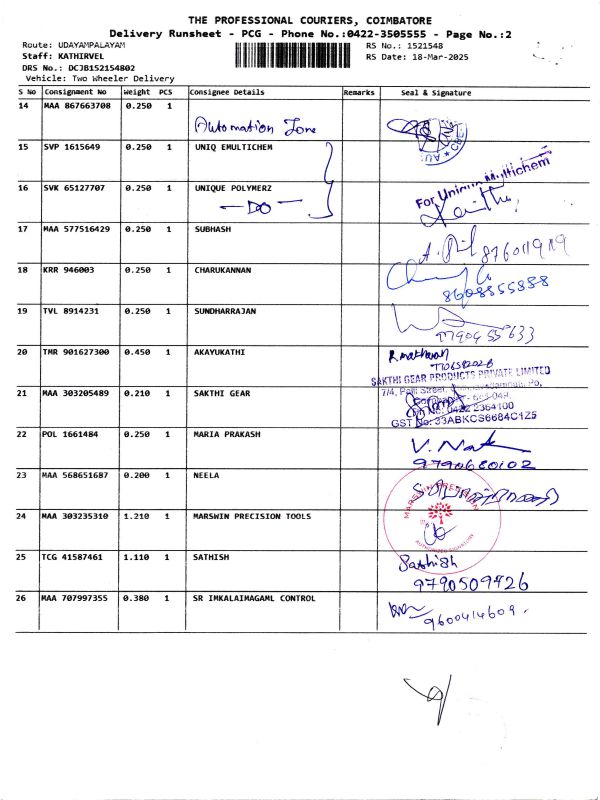 THE PROFESSIONAL COURIERS, COIMBATORE
Delivery Runsheet - PCG - Phone No.:0422-3505555 - Page No.:2
Route: UDAYAMPALAYAM
RS No.: 1521548
Staff: KATHIRVEL
RS Date: 18-Mar-2025
DRS No.: DCJB152154802
Vehicle: Two Wheeler Delivery
S No Consignment No Weight PCS Consignee Details Remarks Seal & Signature
14 MAA 867663708 0.250 1
Automation Zone
15 SVP 1615649 0.250 1 UNIQ EMULTICHEM
16 SVK 65127707 0.250 1 UNIQUE POLYMERZ
For Unique Multichem
— DO —
17 MAA 577516429 0.250 1 SUBHASH
18 KRR 946003 0.250 1 CHARUKANNAN
8608555858
19 TVL 8914231 0.250 1 SUNDHARRAJAN
20 TMR 901627300 0.450 1 AKAYUKATHI
SAKTHI GEAR PRODUCTS PRIVATE LIMITED
21 MAA 303205489 0.210 1 SAKTHI GEAR
7/4, Palli Street, Po,
0422 2364100
GST No: 33ABKCS6684C1Z5
22 POL 1661484 0.250 1 MARIA PRAKASH
9790680102
23 MAA 568651687 0.200 1 NEELA
24 MAA 303235310 1.210 1 MARSWIN PRECISION TOOLS
MARSWIN PRECISION
AUTHORIZED SIGNATORY
25 TCG 41587461 1.110 1 SATHISH
Sathish
9790509426
26 MAA 707997355 0.380 1 SR IMKALAIMAGAML CONTROL
9600414609.